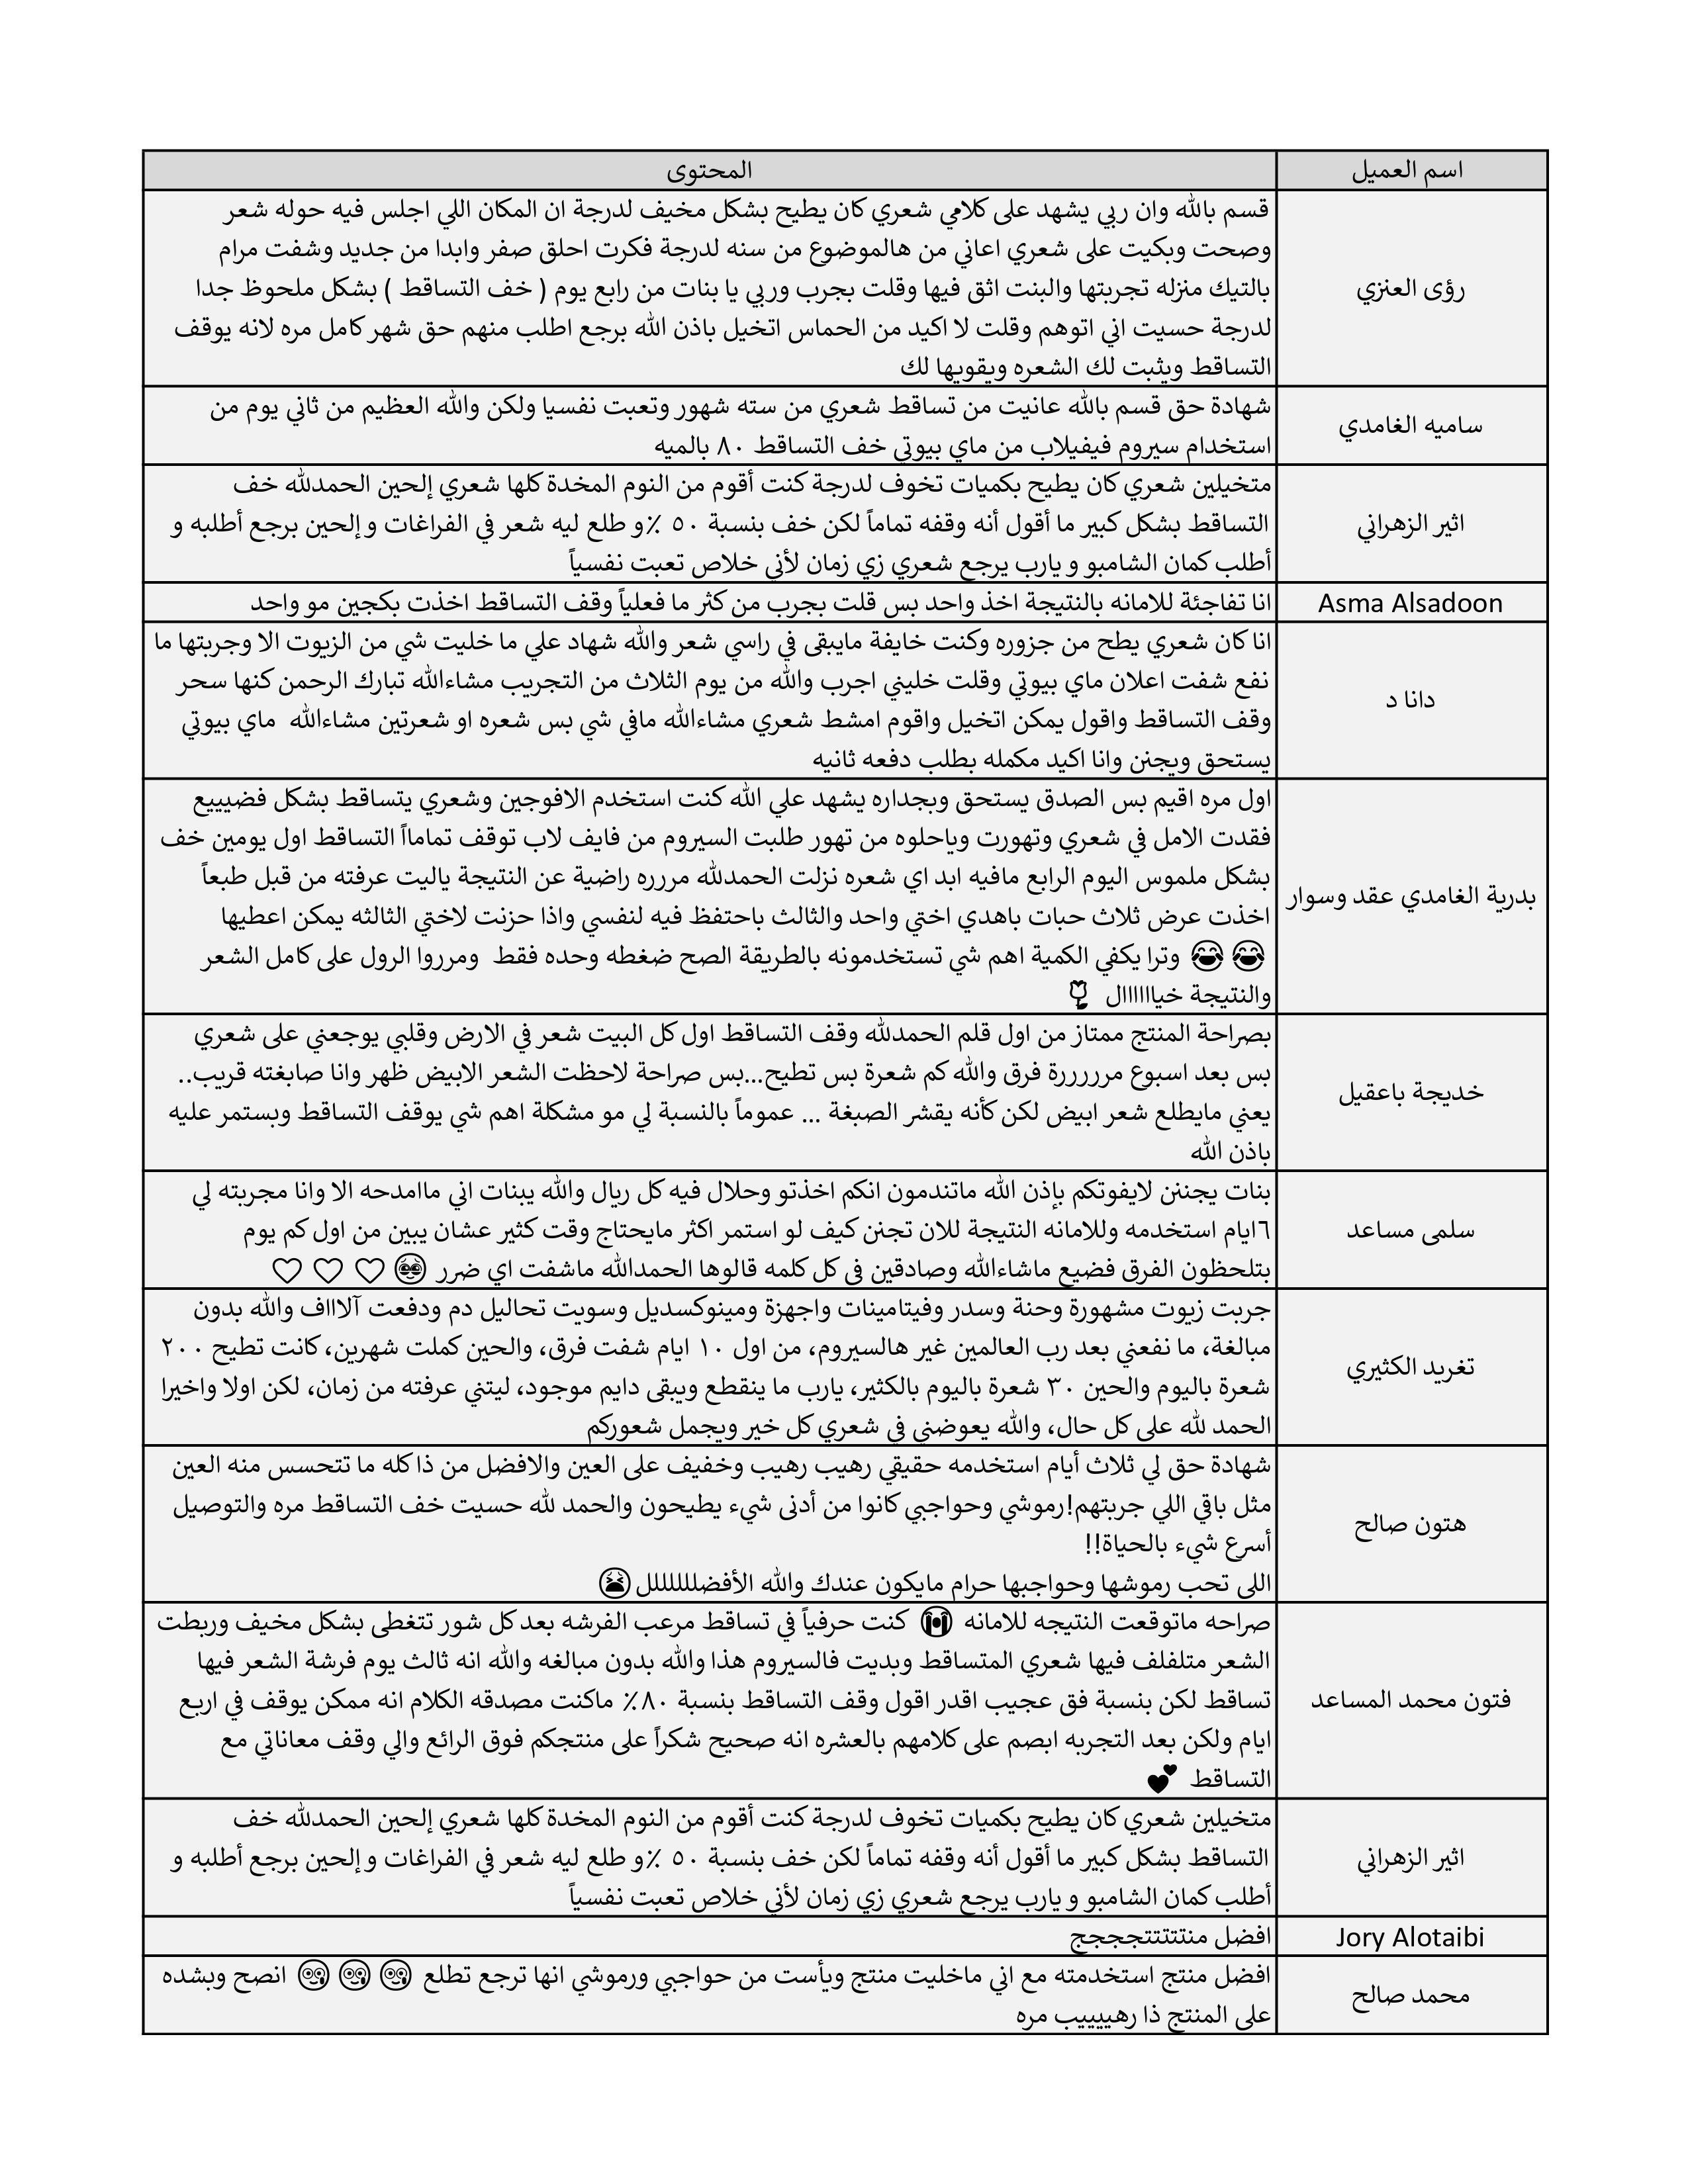 اسم العميل
المحتوى
رؤى العنزي
قسم بالله وان ربي يشهد على كلامي شعري كان يطيح بشكل مخيف لدرجة ان المكان اللي اجلس فيه حوله شعر
وصحت وبكيت على شعري اعاني من هالموضوع من سنه لدرجة فكرت احلق صفر وابدا من جديد وشفت مرام
بالتيك منزله تجربتها والبنت اثق فيها وقلت بجرب وربي يا بنات من رابع يوم ( خف التساقط ) بشكل ملحوظ جدا
لدرجة حسيت اني اتوهم وقلت لا اكيد من الحماس اتخيل باذن الله برجع اطلب منهم حق شهر كامل مره لانه يوقف
التساقط ويثبت لك الشعره ويقويها لك
ساميه الغامدي
شهادة حق قسم بالله عانيت من تساقط شعري من سته شهور وتعبت نفسيا ولكن والله العظيم من ثاني يوم من
استخدام سيروم فيفيلاب من ماي بيوتي خف التساقط ٨٠ بالميه
اثير الزهراني
متخيلين شعري كان يطيح بكميات تخوف لدرجة كنت أقوم من النوم المخدة كلها شعري إلحين الحمدلله خف
التساقط بشكل كبير ما أقول أنه وقفه تماماً لكن خف بنسبة ٥٠ ٪و طلع ليه شعر في الفراغات و إلحين برجع أطلبه و
أطلب كمان الشامبو و يارب يرجع شعري زي زمان لأني خلاص تعبت نفسياً
Asma Alsadoon
انا تفاجئة للامانه بالنتيجة اخذ واحد بس قلت بجرب من كثر ما فعلياً وقف التساقط اخذت بكجين مو واحد
دانا د
انا كان شعري يطح من جزوره وكنت خايفة مايبقى في راسي شعر والله شهاد علي ما خليت شي من الزيوت الا وجربتها ما
نفع شفت اعلان ماي بيوتي وقلت خليني اجرب والله من يوم الثلاث من التجريب مشاءالله تبارك الرحمن كنها سحر
وقف التساقط واقول يمكن اتخيل واقوم امشط شعري مشاءالله مافي شي بس شعره او شعرتين مشاءالله ماي بيوتي
يستحق ويجنن وانا اكيد مكمله بطلب دفعه ثانيه
بدرية الغامدي عقد وسوار
اول مره اقيم بس الصدق يستحق وبجداره يشهد علي الله كنت استخدم الافوجين وشعري يتساقط بشكل فضيييع
فقدت الامل في شعري وتهورت وياحلوه من تهور طلبت السيروم من فايف لاب توقف تماماً التساقط اول يومين خف
بشكل ملموس اليوم الرابع مافيه ابد اي شعره نزلت الحمدلله مررره راضية عن النتيجة ياليت عرفته من قبل طبعاً
اخذت عرض ثلاث حبات باهدي اختي واحد والثالث باحتفظ فيه لنفسي واذا حزنت لاختي الثالثه يمكن اعطيها
😂😂 وترا يكفي الكمية اهم شي تستخدمونه بالطريقة الصح ضغطه وحده فقط ومرروا الرول على كامل الشعر
والنتيجة خياااااال 🌷
خديجة باعقيل
بصراحة المنتج ممتاز من اول قلم الحمدلله وقف التساقط اول كل البيت شعر في الارض وقلبي يوجعني على شعري
بس بعد اسبوع مرررررة فرق والله كم شعرة بس تطيح...بس صراحة لاحظت الشعر الابيض ظهر وانا صابغته قريب..
يعني مايطلع شعر ابيض لكن كأنه يقشر الصبغة ... عموماً بالنسبة لي مو مشكلة اهم شي يوقف التساقط وبستمر عليه
باذن الله
سلمى مساعد
بنات يجننن لايفوتكم بإذن الله ماتندمون انكم اخذتو وحلال فيه كل ريال والله يبنات اني ماامدحه الا وانا مجربته لي
٦ايام استخدمه وللامانه النتيجة للان تجنن كيف لو استمر اكثر مايحتاج وقت كثير عشان يبين من اول كم يوم
بتلحظون الفرق فضيع ماشاءالله وصادقين في كل كلمه قالوها الحمدالله ماشفت اي ضرر 😍♡ ♡ ♡
تغريد الكثيري
جربت زيوت مشهورة وحنة وسدر وفيتامينات واجهزة ومينوكسديل وسويت تحاليل دم ودفعت آلاااف والله بدون
مبالغة، ما نفعني بعد رب العالمين غير هالسيروم، من اول ١٠ ايام شفت فرق، والحين كملت شهرين، كانت تطيح ٢٠٠
شعرة باليوم والحين ٣٠ شعرة باليوم بالكثير، يارب ما ينقطع ويبقى دايم موجود، ليتني عرفته من زمان، لكن اولا واخيرا
الحمد لله على كل حال، والله يعوضني في شعري كل خير ويجمل شعوركم
هتون صالح
شهادة حق لي ثلاث أيام استخدمه حقيقي رهيب رهيب وخفيف على العين والافضل من ذا كله ما تتحسس منه العين
مثل باقي اللي جربتهم!رموشي وحواجبي كانوا من أدنى شيء يطيحون والحمد لله حسيت خف التساقط مره والتوصيل
أسرع شيء بالحياة!!
اللى تحب رموشها وحواجبها حرام مايكون عندك والله الأفضلللللللل😫
فتون محمد المساعد
صراحه ماتوقعت النتيجه للامانه 😭 كنت حرفياً في تساقط مرعب الفرشه بعد كل شور تتغطى بشكل مخيف وربطت
الشعر متلفلف فيها شعري المتساقط وبديت فالسيروم هذا والله بدون مبالغه والله انه ثالث يوم فرشة الشعر فيها
تساقط لكن بنسبة فق عجيب اقدر اقول وقف التساقط بنسبة ٨٠٪ ماكنت مصدقه الكلام انه ممكن يوقف في اربع
ايام ولكن بعد التجربه ابصم على كلامهم بالعشره انه صحيح شكراً على منتجكم فوق الرائع والي وقف معاناتي مع
التساقط 💕
اثير الزهراني
متخيلين شعري كان يطيح بكميات تخوف لدرجة كنت أقوم من النوم المخدة كلها شعري إلحين الحمدلله خف
التساقط بشكل كبير ما أقول أنه وقفه تماماً لكن خف بنسبة ٥٠ ٪و طلع ليه شعر في الفراغات و إلحين برجع أطلبه و
أطلب كمان الشامبو و يارب يرجع شعري زي زمان لأني خلاص تعبت نفسياً
Jory Alotaibi
افضل منتتتتتجججج
محمد صالح
افضل منتج استخدمته مع اني ماخليت منتج ويأست من حواجبي ورموشي انها ترجع تطلع 🥹🥹🥹 انصح وبشده
على المنتج ذا رهيييييب مره